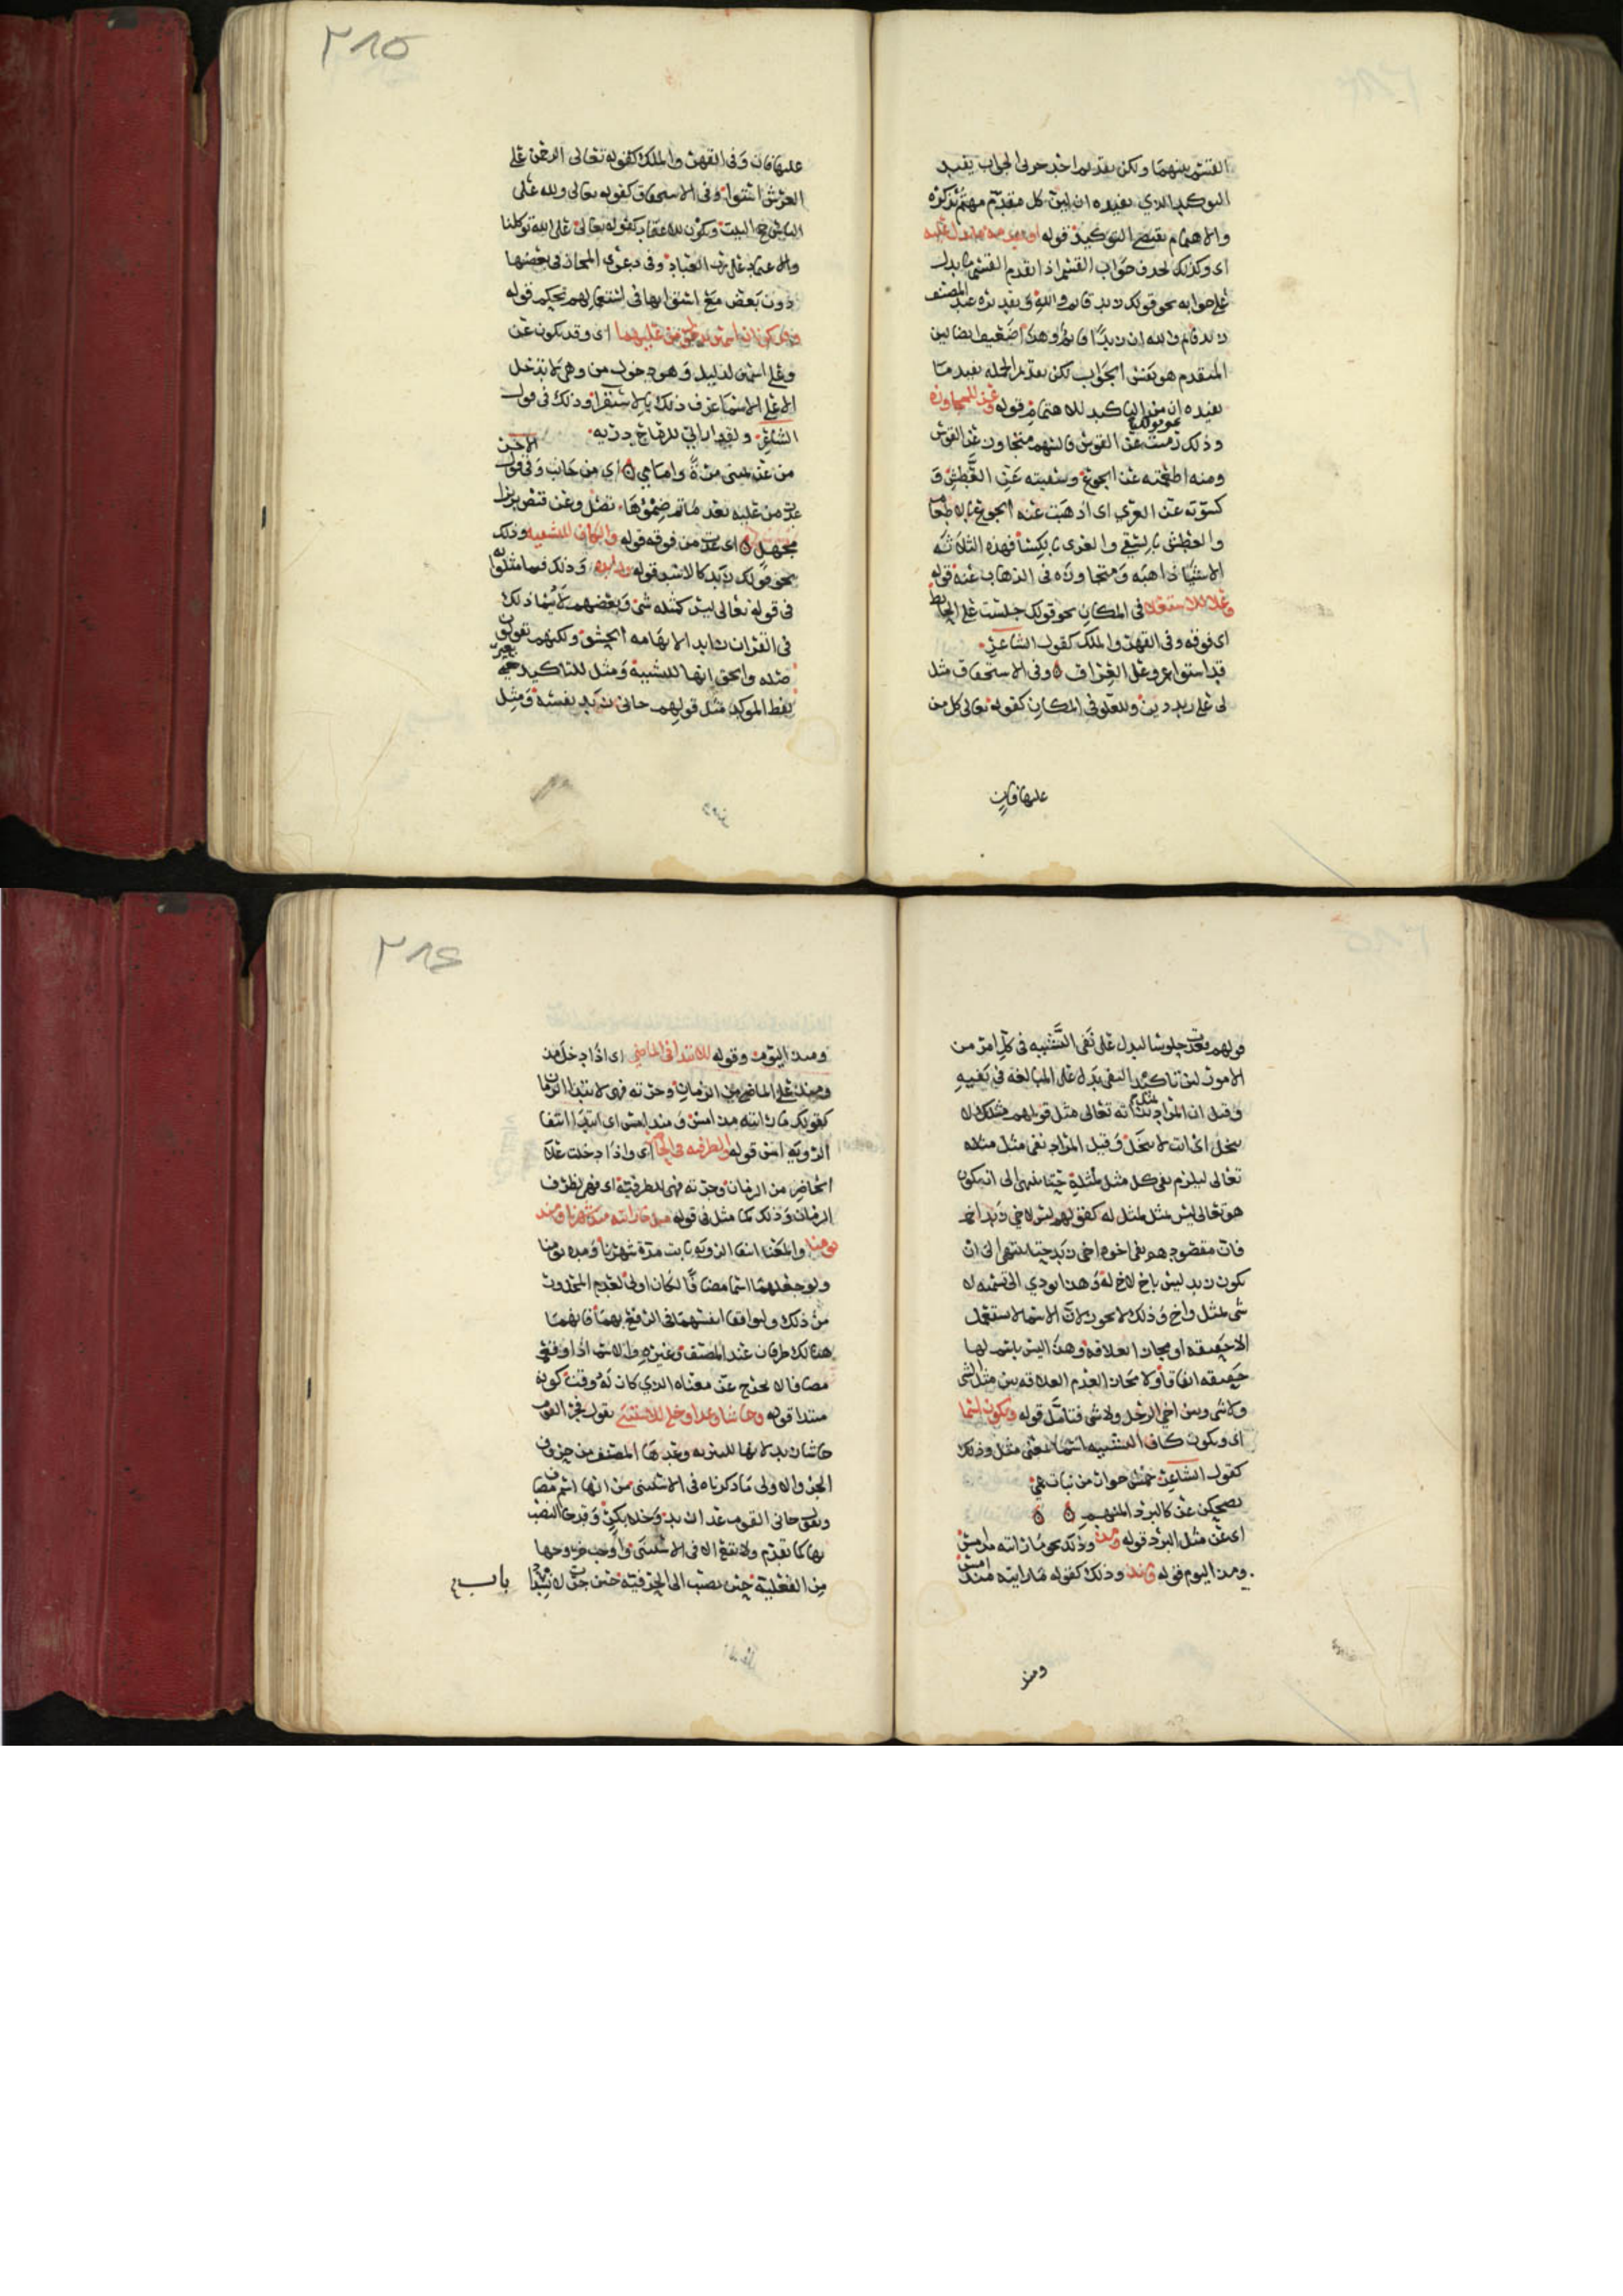 القسم بينهما ولكن تقديم احد جزئى الجواب يفيد
التوكيد الذي يفيده ان لين كل مقدم مهتم بذكره
والاهتمام يقتضي التوكيد قوله او تقدمه ما يدل عليه
اى وكذلك يحذف جواب القسم اذا تقدم القسم ما يدل
على جوابه نحو قولك زيد قائم والله وتقديره عند المصنف
زيد قائم والله ان زيدا قائم وهذا ضعيف ايضا لين
المتقدم هو نفس الجواب لكن تقديم الجمله يفيد ما
يفيده ان من التاكيد للاهتمام قوله وعن للمجاوزه
وذلك نحو قولك رميت عن القوس فالسهم متجاوز عن القوس
ومنه اطعمته عن الجوع وسقيته عن العطش و
كسوته عن العري اى اذهبت عنه الجوع بالاطعام
والعطش بالسقي والعرى بالكسا فهذه الثلاثه
الاشيا ذاهبه ومتجاوزه فى الذهاب عنه قوله
وعلا للاستعلا فى المكان نحو قولك جلست على الحايط
اى فوقه وفى القهر والملك كقول الشاعر
قد استوا عمرو على العراق وفى الاستحقاق مثل
لى على زيد دين وللعلو فى المكان كقوله تعالى كل من
عليها فان
عليها فان وفى القهر والملك كقوله تعالى الرحمن على
العرش استوا وفى الاستحقاق كقوله تعالى ولله على
الناس حج البيت وتكون للاعتماد كقوله تعالى على الله توكلنا
والاعتماد على رب العباد وفى دعوى المجاز فى بعضها
دون بعض مع اشتراكها فى استعمالهم تحكم قوله
وقد يكونان اسمين بدخول من عليهما اى وقد يكون عن
وعلى اسمين لدليل وهو دخول من وهى لا تدخل
الا على الاسما عرف ذلك بالاستقرا وذلك فى قول
الشاعر ولقد اراني للرماح دريه
من عن يمينى مرة وامامي اي من جانب وفى قول الاخر
غدت من عليه بعد ما تم ضمؤها تصل وعن قيض بزيزا
مجهل اى غدت من فوقه قوله والكاف للتشبيه وذلك
نحو قولك زيد كالاسد قوله وزايده وذلك فيما مثلوا به
فى قوله تعالى ليس كمثله شئ وبعضهم لا يسمى ذلك
فى القران زايد الايهامه الحشو ولكنهم يقولون
صله والحق انها للتشبيه ومثل للتاكيد بغير
لفظ الموكد مثل قولهم جانى زيد نفسه ومثل
قولهم قعد جلوسا ليدل على نفى التشبيه فى كل امر من
الامور لين تاكيد النفي يدل على المبالغة فى نفيه
وقيل ان المراد بمثله ذاته تعالى مثل قولهم مثلك لا
يبخل اى انت لا تبخل وقيل المراد نفى مثل مثله
تعالى ليلزم نفى كل مثل لمثله حتا ينتهى الى ان يكون
هو تعالى ليس مثل لمثل له كقولهم ليس لاخي زيد اخ
فان مقصودهم نفى اخوه اخى زيد حتا ينتهى الى ان
يكون زيد ليس باخ لاخ له وهذا يودي الى تسميه لا
شى بمثل واخ وذلك لا يجوز لان الاسم لا يستعمل
الا حقيقه او مجازا لعلاقه وهذا ليس باسم لها
حقيقه اتفاقا ولا مجاز العدم العلاقه بين مثل الشى
ولا شى وبين اخي الرجل ولا شى فتامل قوله وتكون اسما
اى وتكون كاف التشبيه اسما بمعنى مثل وذلك
كقول الشاعر خمس جوار من نبات عمي
يضحكن عن كالبرد المنهم
اى عن مثل البرد قوله ومذ وذلك نحو ما رايته مذ امس
ومذ اليوم قوله ومنذ وذلك كقوله ما رايته منذ امس
ومنذ
ومنذ اليوم وقوله للابتدا فى الماضي اى اذا دخل مذ
ومنذ على الماضى من الزمان وجرته فهى لابتدا الزمان
كقولك ما رايته مذ امس ومنذ امس اى ابتدا انتفا
الرؤية امس قوله والظرفيه فى الحاضر اى واذا دخلت على
الحاضر من الزمان وجرته فهى للظرفية اى فهى لظرف
الزمان وذلك كما مثل فى قوله مثل ما رايته مذ شهرنا ومنذ
يومنا والمعنا انتفا الرؤيه ثابت مدة شهرنا ومده يومنا
ولو جعلهما اسما مضافا لكان اولى لعدم المحذور
من ذلك ولتوافقا انفسهما فى الرفع بهما فانهما
هنالك ظرفان عند المصنف وغيره والاسم اذا وقع
مضافا لا يخرج عن معناه الذي كان له وقت كونه
مبتدا قوله وحاشا وعدا وخلا للاستثنى تقول جانى القوم
حاشا زيد لانها للتنزيه وعدها المصنف من حروف
الجر والاولى ما ذكرناه فى الاستثنى من انها اسم مضاف
وتقول جانى القوم عدا زيد وخلا بكر وقد جا النصب
بها كما تقدم ولا تقع الا فى الاستثنى واوجب خروجها
من الفعلية حين نصب الى الحرفية حين جر لا يتبدا
باب
٢٨٥
٢٨٤